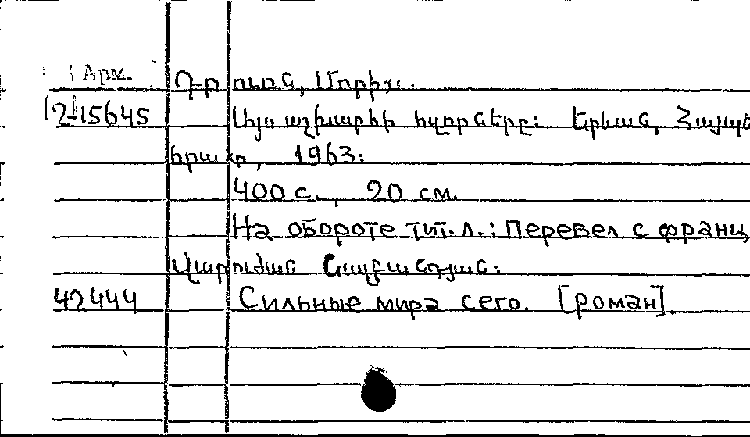 Арм.
Դրյուոն, Մորիս.
12-15645 Այս աշխարհի հզորները: Երևան, Հայպետ
հրատ, 1963:
400 с., 20 см.
На обороте тит. л.: Перевел с франц.
Վարուժան
42444 Сильные мира сего. [роман].